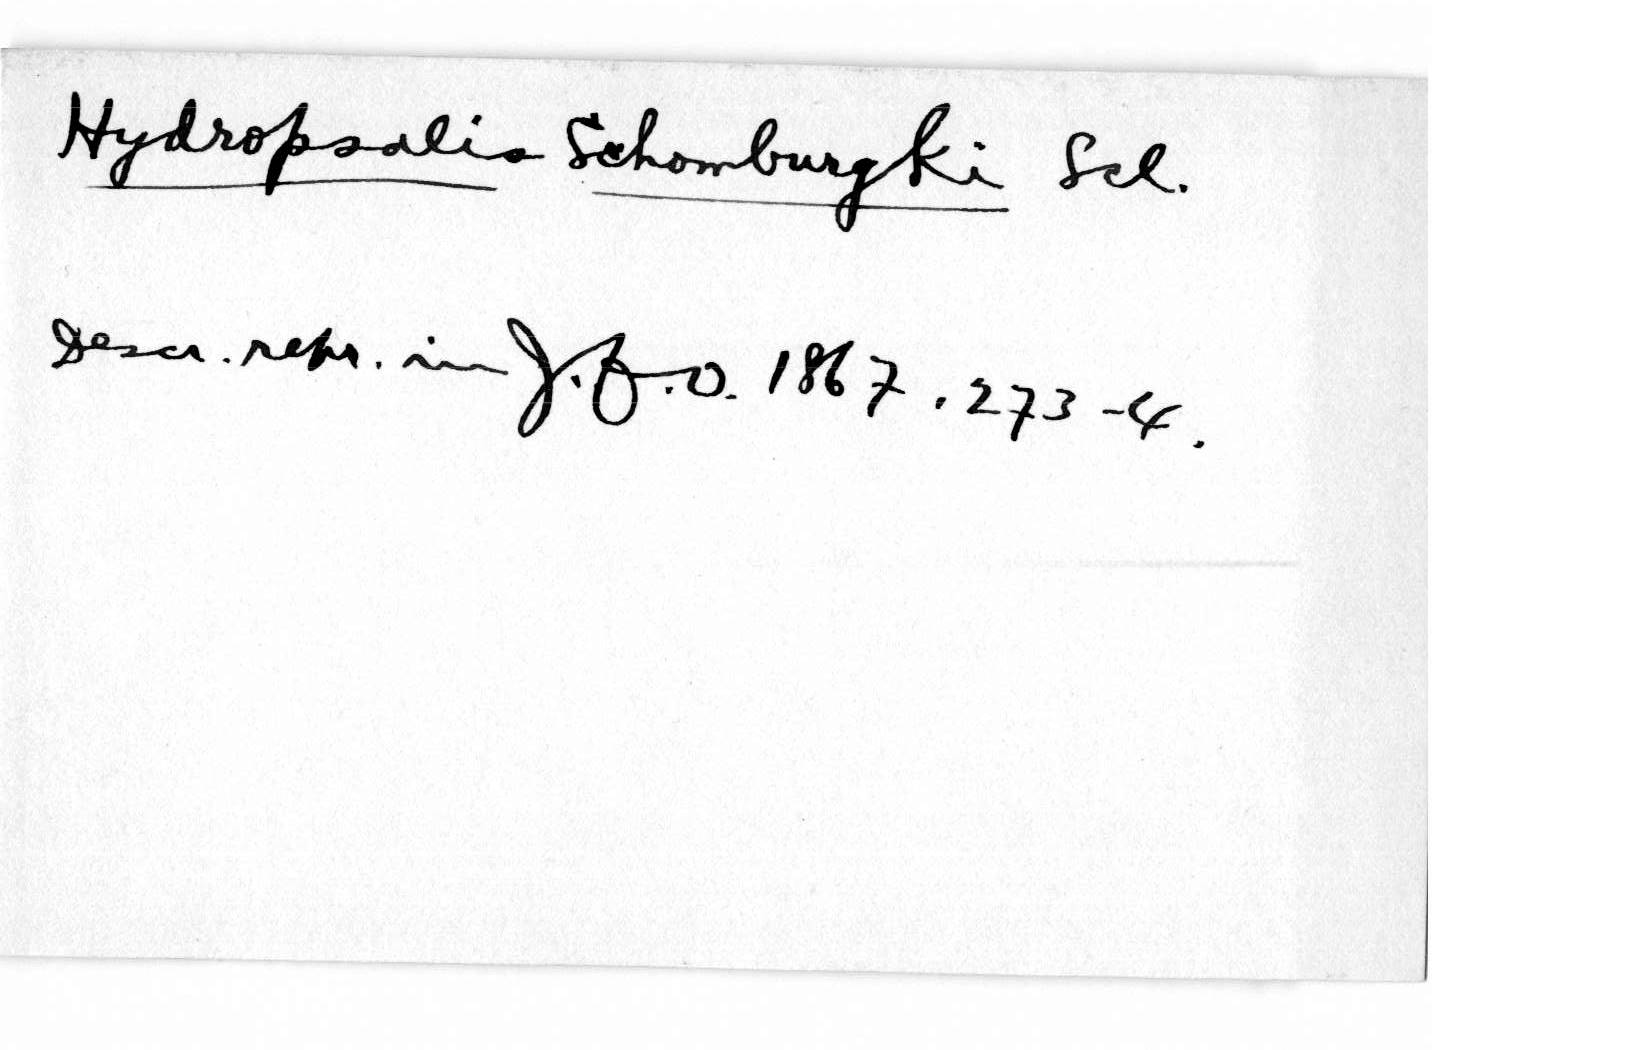 Hydropsalis Schomburgki Scl.
Descr. repr. in J.f.O. 1867. 273-4.